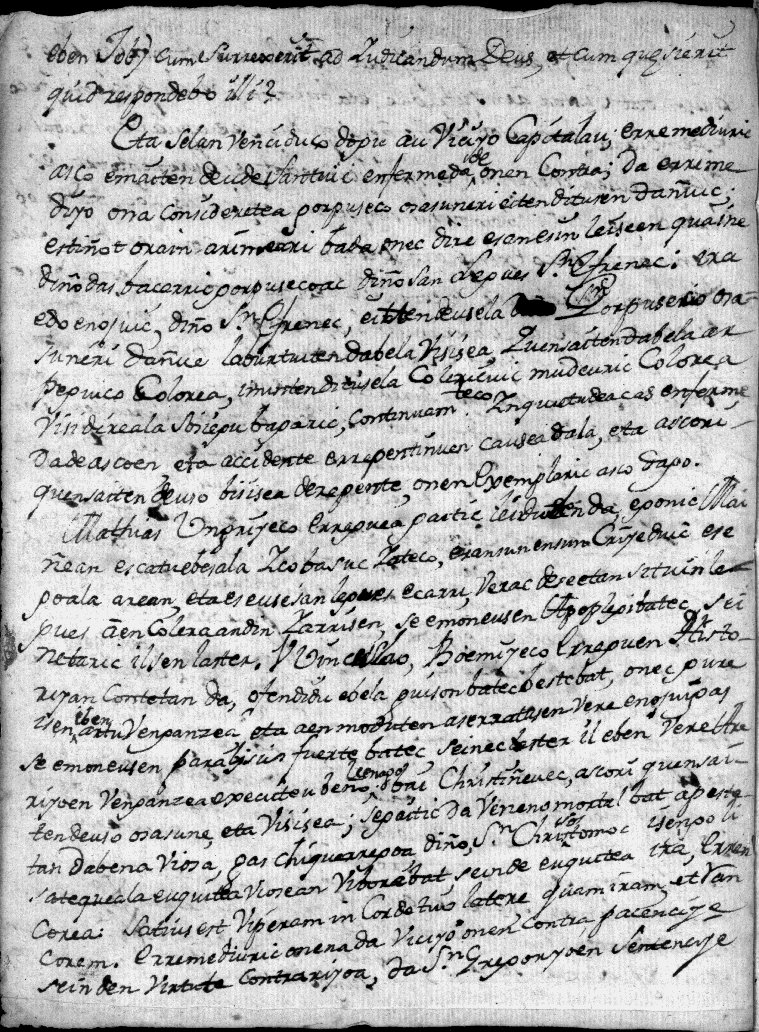 eben Job) cum surrexerit ad Judicandum Deus, et cum quesierit
quid respondebo illi?
Eta selan Venciduco dogu au Viciyo Capitalau; erremediuric
asco emaiten deude Santuic enfermedade onen Contra; da erreme
diyo ona Consideretea porpuseco osasuneri eitenditusen dañuic:
estiñot orain arimeari baña onec dire esanesun leiseen quasne
diñodas, bacarric porpusecoac diñosan legues Sn. Efrenec: ira
edo enojuic, diño Sn. Efrenec, eitendeusela Gorpuserico osa
suneri dañue laburtuitendabela Visisea, Zuensaitendabela ar
pepuico Colorea, imintenditusela Colericuic mudeuric Colorea
Visidereala Soñepu baparic, Continuam.teco Inquietudeacas enferme
dadeascoen eta accidente errepentinuen causea dala, eta ascori
quensaiten deuso bisisea derepente, onen Exemploric asco dago.
Mathias Ungriyeco Erreguea gaitic leiduten da, egonic Mai
ñean escatuebesala Ico basuc Zateco, esansunensuan Criyeduic ese
goala arean, eta es eusesan legues ecarri, Verac deseetan situsin le
gues aen Colera andin Zarrisen, se emoneusen Apoplegiabatec, sei
netaric ilsen laster. Vvinceslao, Boemiyeco Erreguen Histo
riyan Contetan da, ofendidu ebela guison batec bestebat, onec gure
isen eben artu Venganzea eta aen moduten aserratusen Vere enojuigas
se emoneusen paralisis fuerte batec, seinec laster il eben Vere Ira
riyoen Venganzea executeu baño leenago; orai Christiñeuec, ascori quensai
tendeuso osasune, eta Visisea; segaitic da Veneno mortal bat apeste
tan dabena Viosa, gas chiquerregoa diño, Sn. Christomoc isengo li
satequeala euquitea Viosean Vibora bat, seinde euquitea ira, Erren
Corea: Satius est Viperam in Corde tuo latere quam iram, et Ran
Corem. Erremediuric onena da Viciyo onen contra pacenciye
seinden Virtute Contrariyoa, da Sn. Gregoriyoen Sentenciye